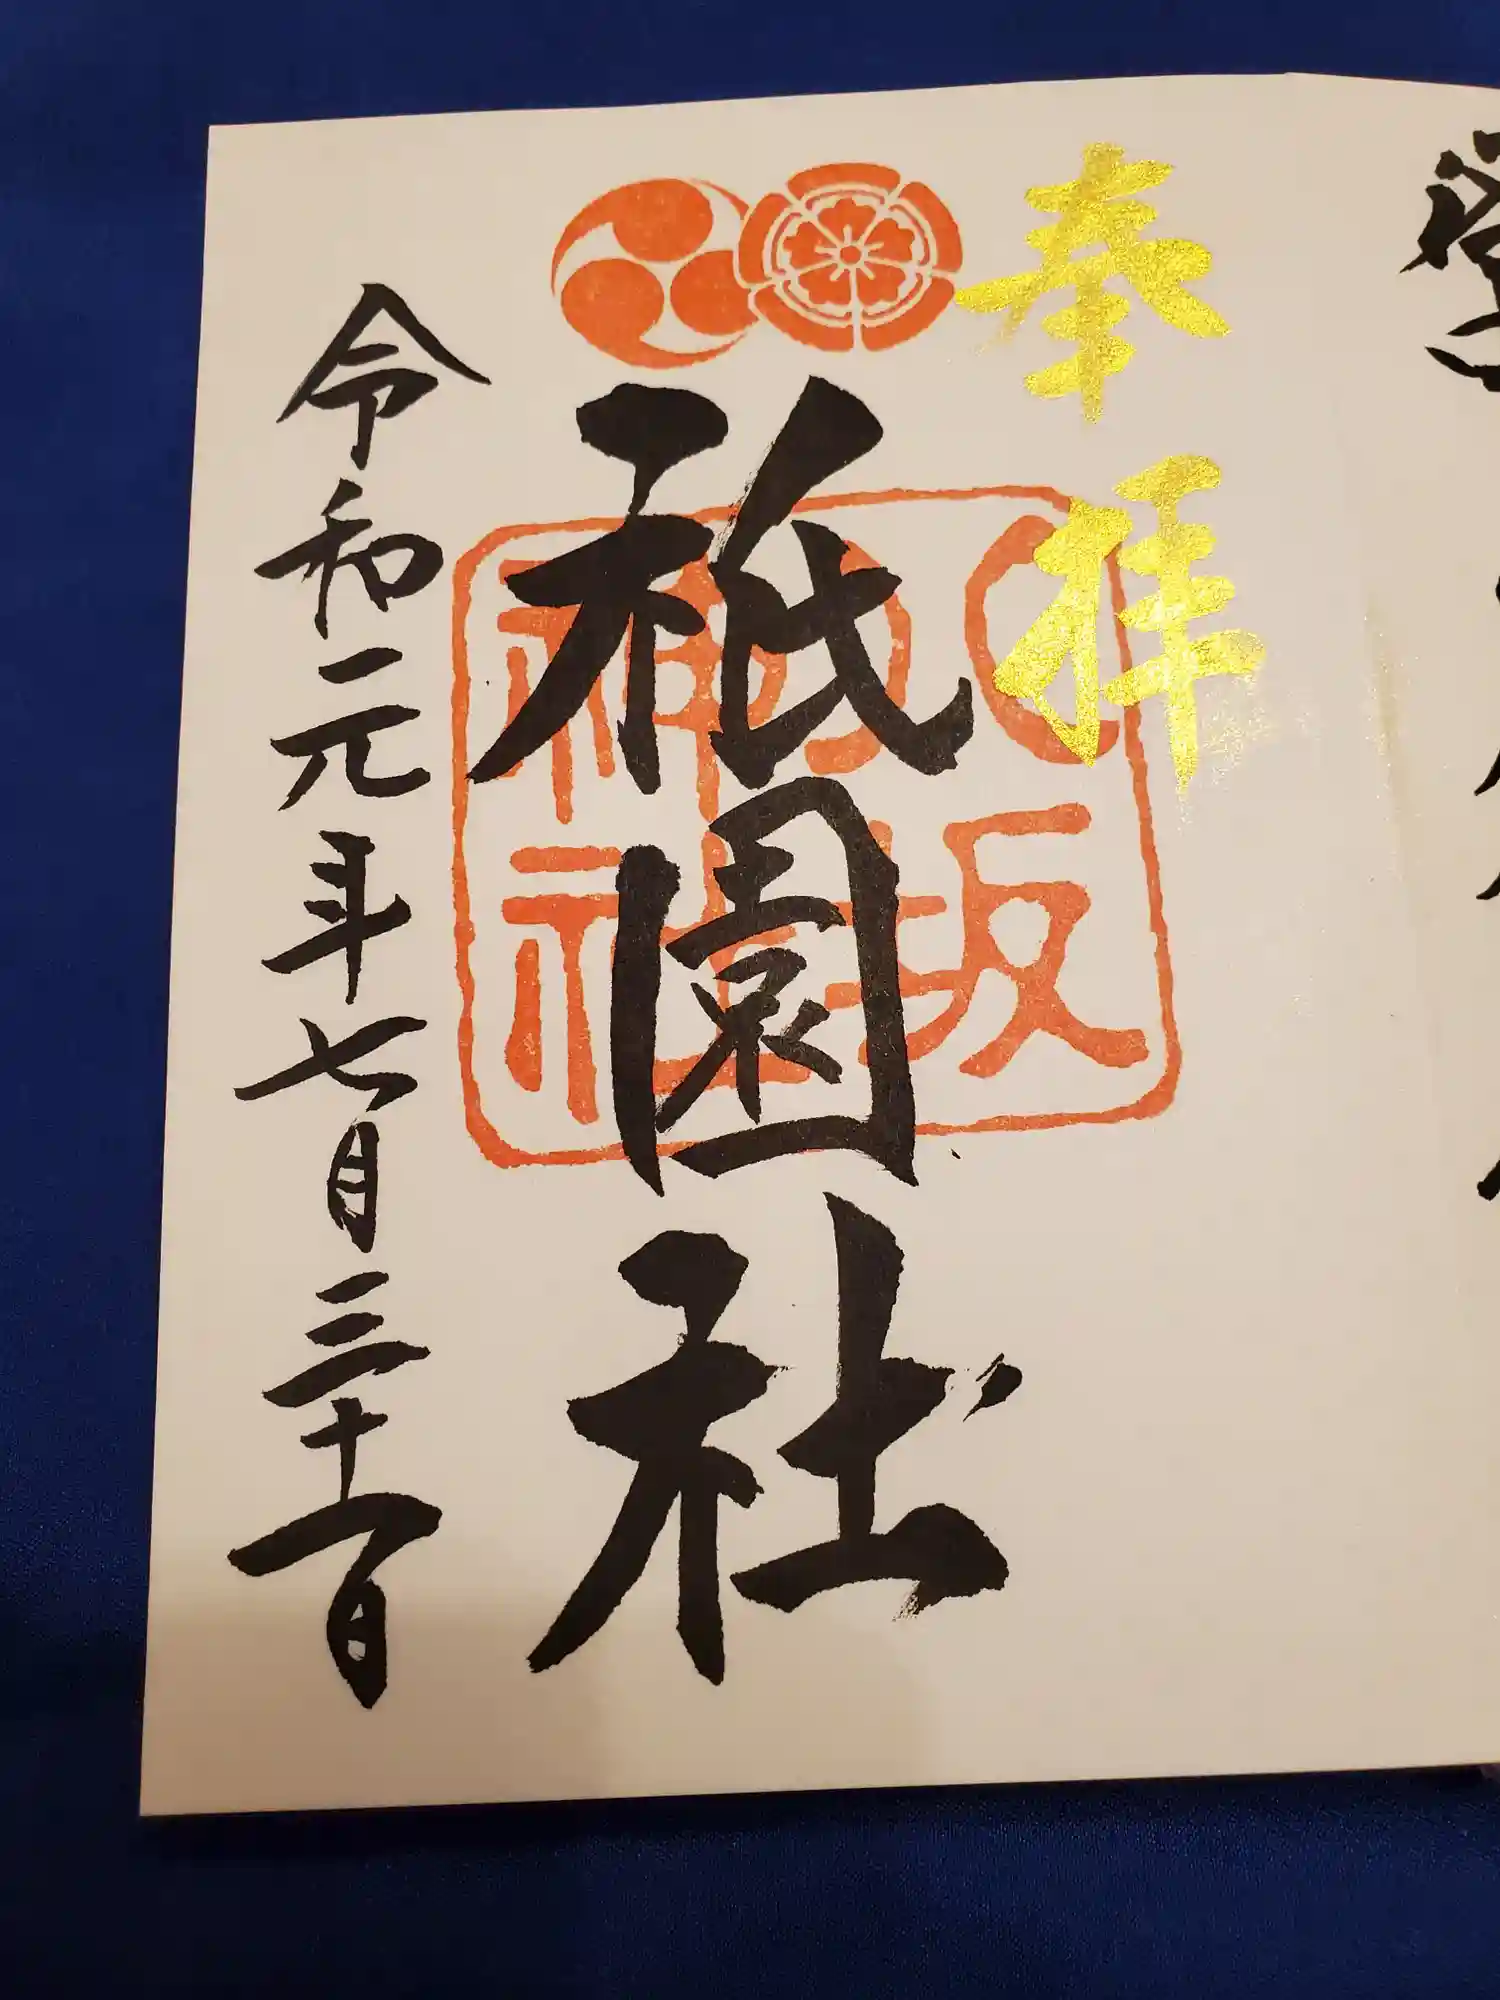 奉拝
祇園社
八坂神社
令和元年七月三十一日